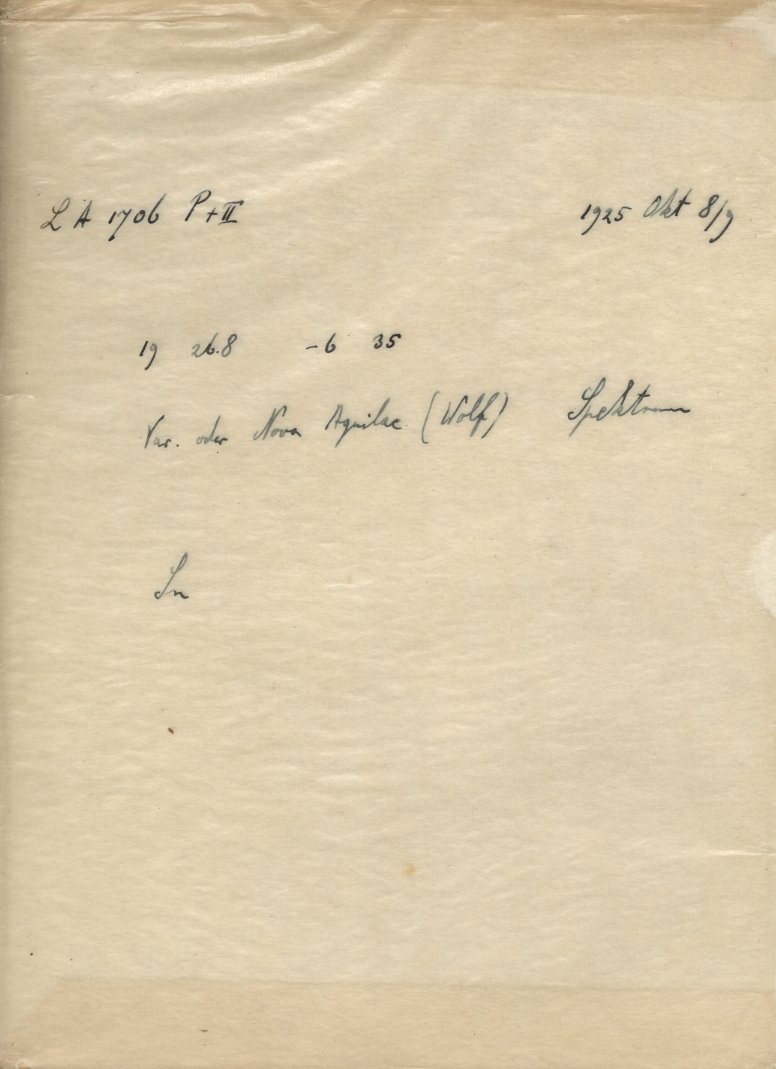 LA 1706 P+II 1925 Okt 8/9
19 26.8 -6 35
Var. oder Nova Aquilae (Wolf) Spektrum